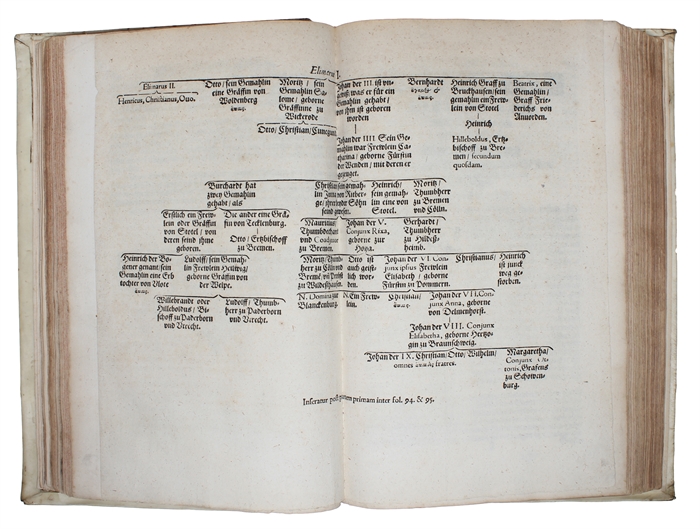 Elimarus I.
Elimarus II.
Henricus, Christianus, Otto.
Otto/ sein Gemahlin
eine Gräffin von
Woldenberg
Moritz/ sein
Gemahlin Sa-
lome/ geborne
Gräffinne zu
Wickerode
Otto/ Christian/ Cunegund
Johan der III. ist un-
gewiß/ was er für ein
Gemahlin gehabt/
von ihm ist geboren
worden
Johan der IIII. Sein Ge-
mahlin war Frewlein Ca-
tharina/ geborne Fürstin
der Wenden/ mit deren er
gezeuget.
Bernhardt
Heinrich Graff zu
Bruckhausen/ sein
gemahlin ein Frew-
lein von Stotel
Heinrich
Hilleboldus, Ertz-
bischoff zu Bre-
men/ secundum
quosdam.
Beatrix, eine
Gemahlin/
Graff Frie-
derichs von
Anvorden.
Burchardt hat
zwey Gemahlin
gehabt/ als
Christian/ sein gemah-
lin Jutta von Rietber-
ge/ ihrer Söhn
seind gewest.
Heinrich/
sein gemah-
lin eine von
Stotel.
Moritz/
Thumbherr
zu Bremen
und Cölln.
Erstlich ein Frew-
lein oder Gräffin
von Stotel/ von
deren seind ihme
geboren.
Die ander eine Grä-
fin von Tecklenburg.
Otto/ Ertzbischoff
zu Bremen.
Mauritius/
Thumbdechat
und Coadjutor
zu Bremen.
Johan der V.
Conjunx Rixa,
geborne zur
Hoya.
Gerhardt/
Thumbherr
zu Hildeß-
heimb.
Heinrich der Bo-
gener genant/ sein
Gemahlin eine Erb-
tochter von Vlote
Ludolff/ sein Gemah-
lin Frewlein Heilwig/
geborne Gräffin von
der Welpe.
Moritz/ Thum-
herr zu Cölln und
Breme/ und Probst
zu Wildeßhausen.
Otto ist
auch geist-
lich wor-
den.
Johan der VI. Con-
junx ipsius Frewlein
Elisabeth/ geborne
Fürstin zu Pommern.
Christianus/
Heinrich
ist junck
weg ge-
storben.
Willebrandt oder
Hilleboldus/ Bi-
schoff zu Paderborn
und Utrecht.
Ludolff/ Thumb-
herr zu Paderborn
und Utrecht.
N. Domina zur
Blanckenburg.
N. Ein Frew-
lein.
Christian/
Johan der VII. Con-
junx Anna, von
Delmenhorst.
Johan der VIII. Conjunx
Elisabetha, geborne Hertzo-
gin zu Braunschweig.
Johan der IX. Christian/ Otto/ Wilhelm/
omnes fratres.
Margaretha/
Conjunx Ot-
tonis, Grafens
zu Schowen-
burg.
Inseratur post primam inter fol. 94. & 95.